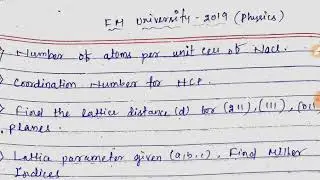 FM University - 2019 (Physics)
Number of atoms per unit cell of Nacl.
Coordination Number for HCP.
Find the lattice distance (d) for (211), (111),
planes.
Lattice parameter given (a,b,c), Find Miller
Indices